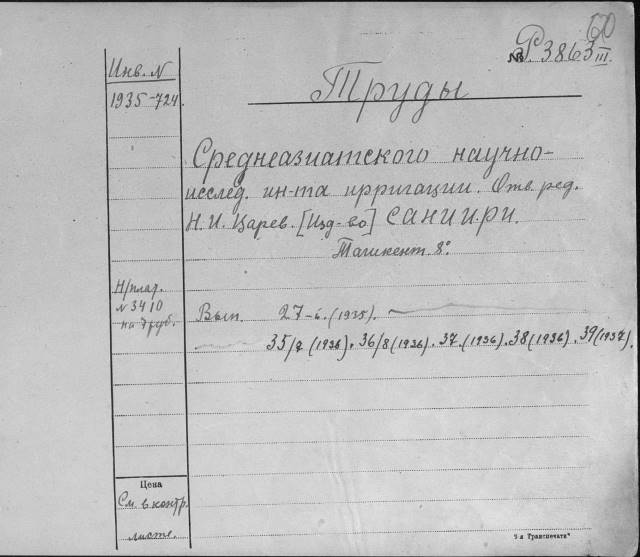 60
№ Р. 3863 III.
Инв. N
1935-724.
Труды
Среднеазиатского научно-
исслед. ин-та ирригации. Отв. ред.
Н. И. Царев. [Изд-во] САНИИРИ.
Ташкент. 8°.
Н/плар.
N 3410
на друб.
Вып. 27-6. (1935).
35/7 (1936). 36/8 (1936). 37. (1936). 38 (1936). 39 (1937).
Цена
См. в контр.
листе.
9-я Транспечать"